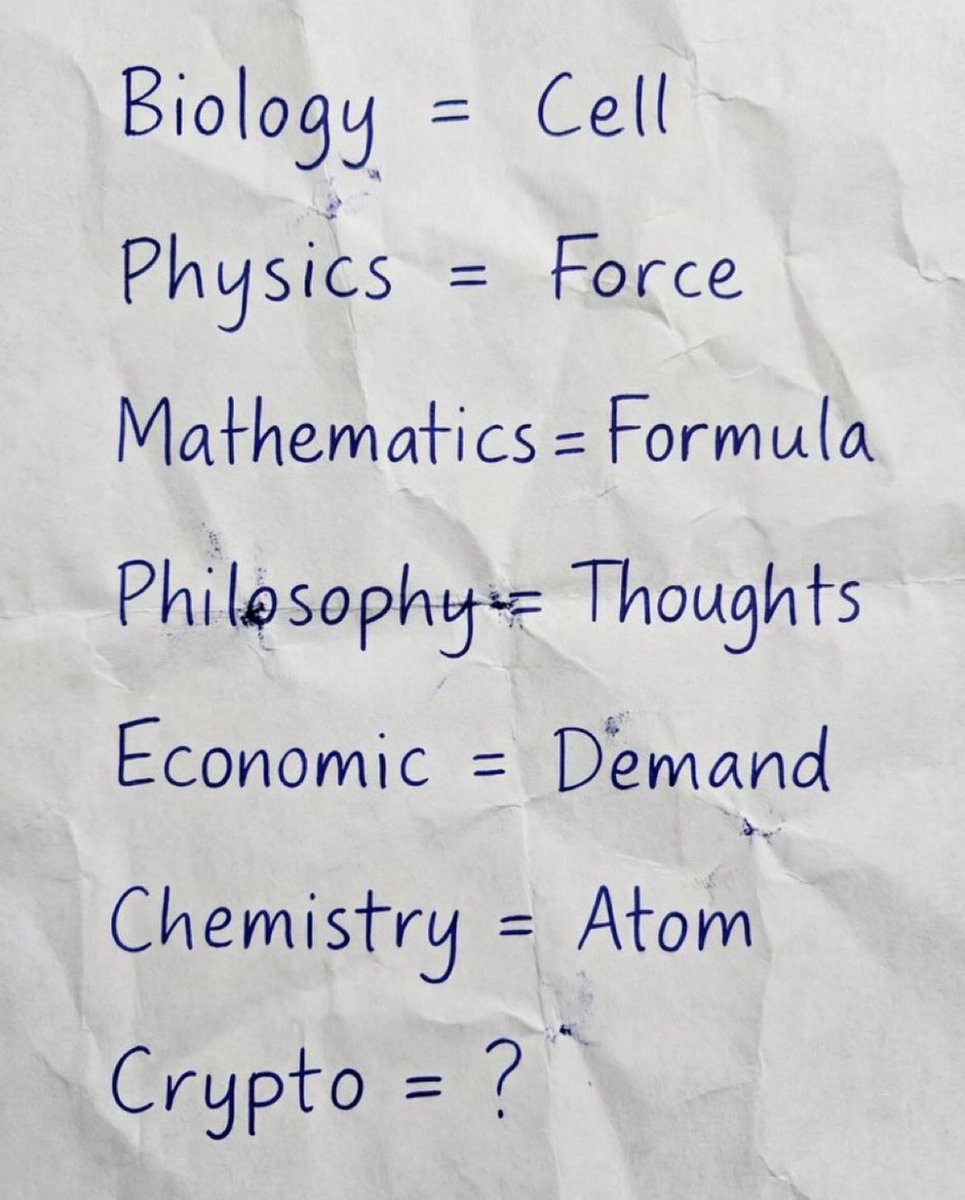 Biology = Cell
Physics = Force
Mathematics = Formula
Philosophy = Thoughts
Economic = Demand
Chemistry = Atom
Crypto = ?